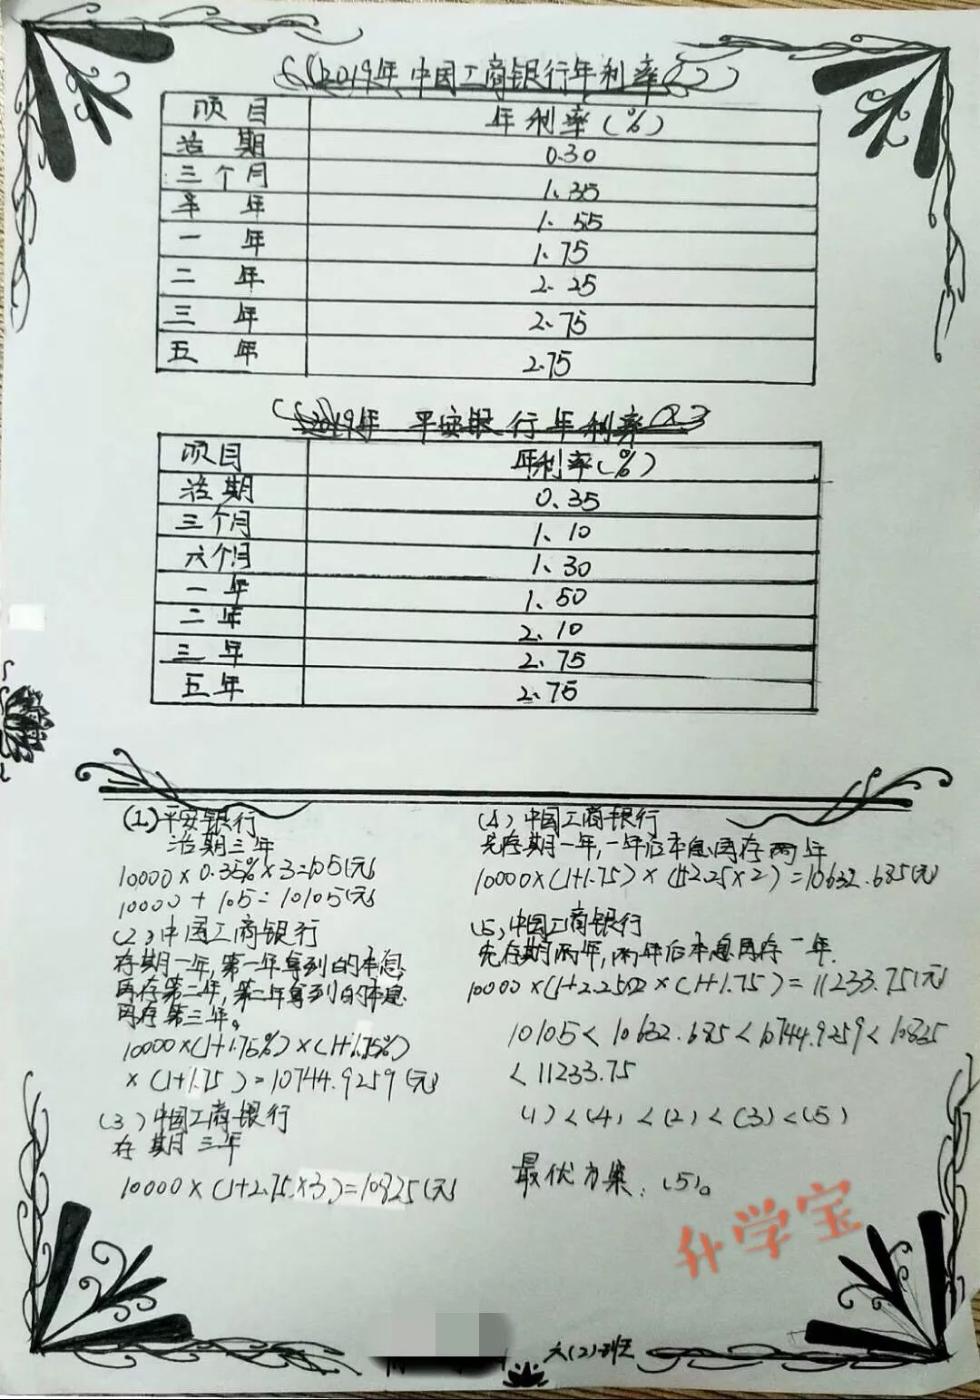 2019年中国工商银行年利率
项目 年利率(%)
活期 0.30
三个月 1.35
半年 1.55
一年 1.75
二年 2.25
三年 2.75
五年 2.75
2019年 平安银行年利率
项目 年利率(%)
活期 0.35
三个月 1.10
六个月 1.30
一年 1.50
二年 2.10
三年 2.75
五年 2.75
(1)平安银行
活期三年
10000×0.35%×3=105(元)
10000+105=10105(元)
(2)中国工商银行
存期一年,第一年拿到的本息
再存第二年,第二年拿到的本息
再存第三年。
10000×(1+1.75%)×(1+1.75%)
×(1+1.75)=10744.9259(元)
(3)中国工商银行
存期三年
10000×(1+2.75×3)=10825(元)
(4)中国工商银行
先存期一年,一年后本息再存两年
10000×(1+1.75)×(1+2.25×2)=10632.685(元)
(5)中国工商银行
先存期两年,两年后本息再存一年.
10000×(1+2.25×(1+1.75)=11233.75(元)
10105<10632.685<10744.9259<10825
<11233.75
(1)<(4)<(2)<(3)<(5)
最优方案:(5)。
升学宝
六(2)班